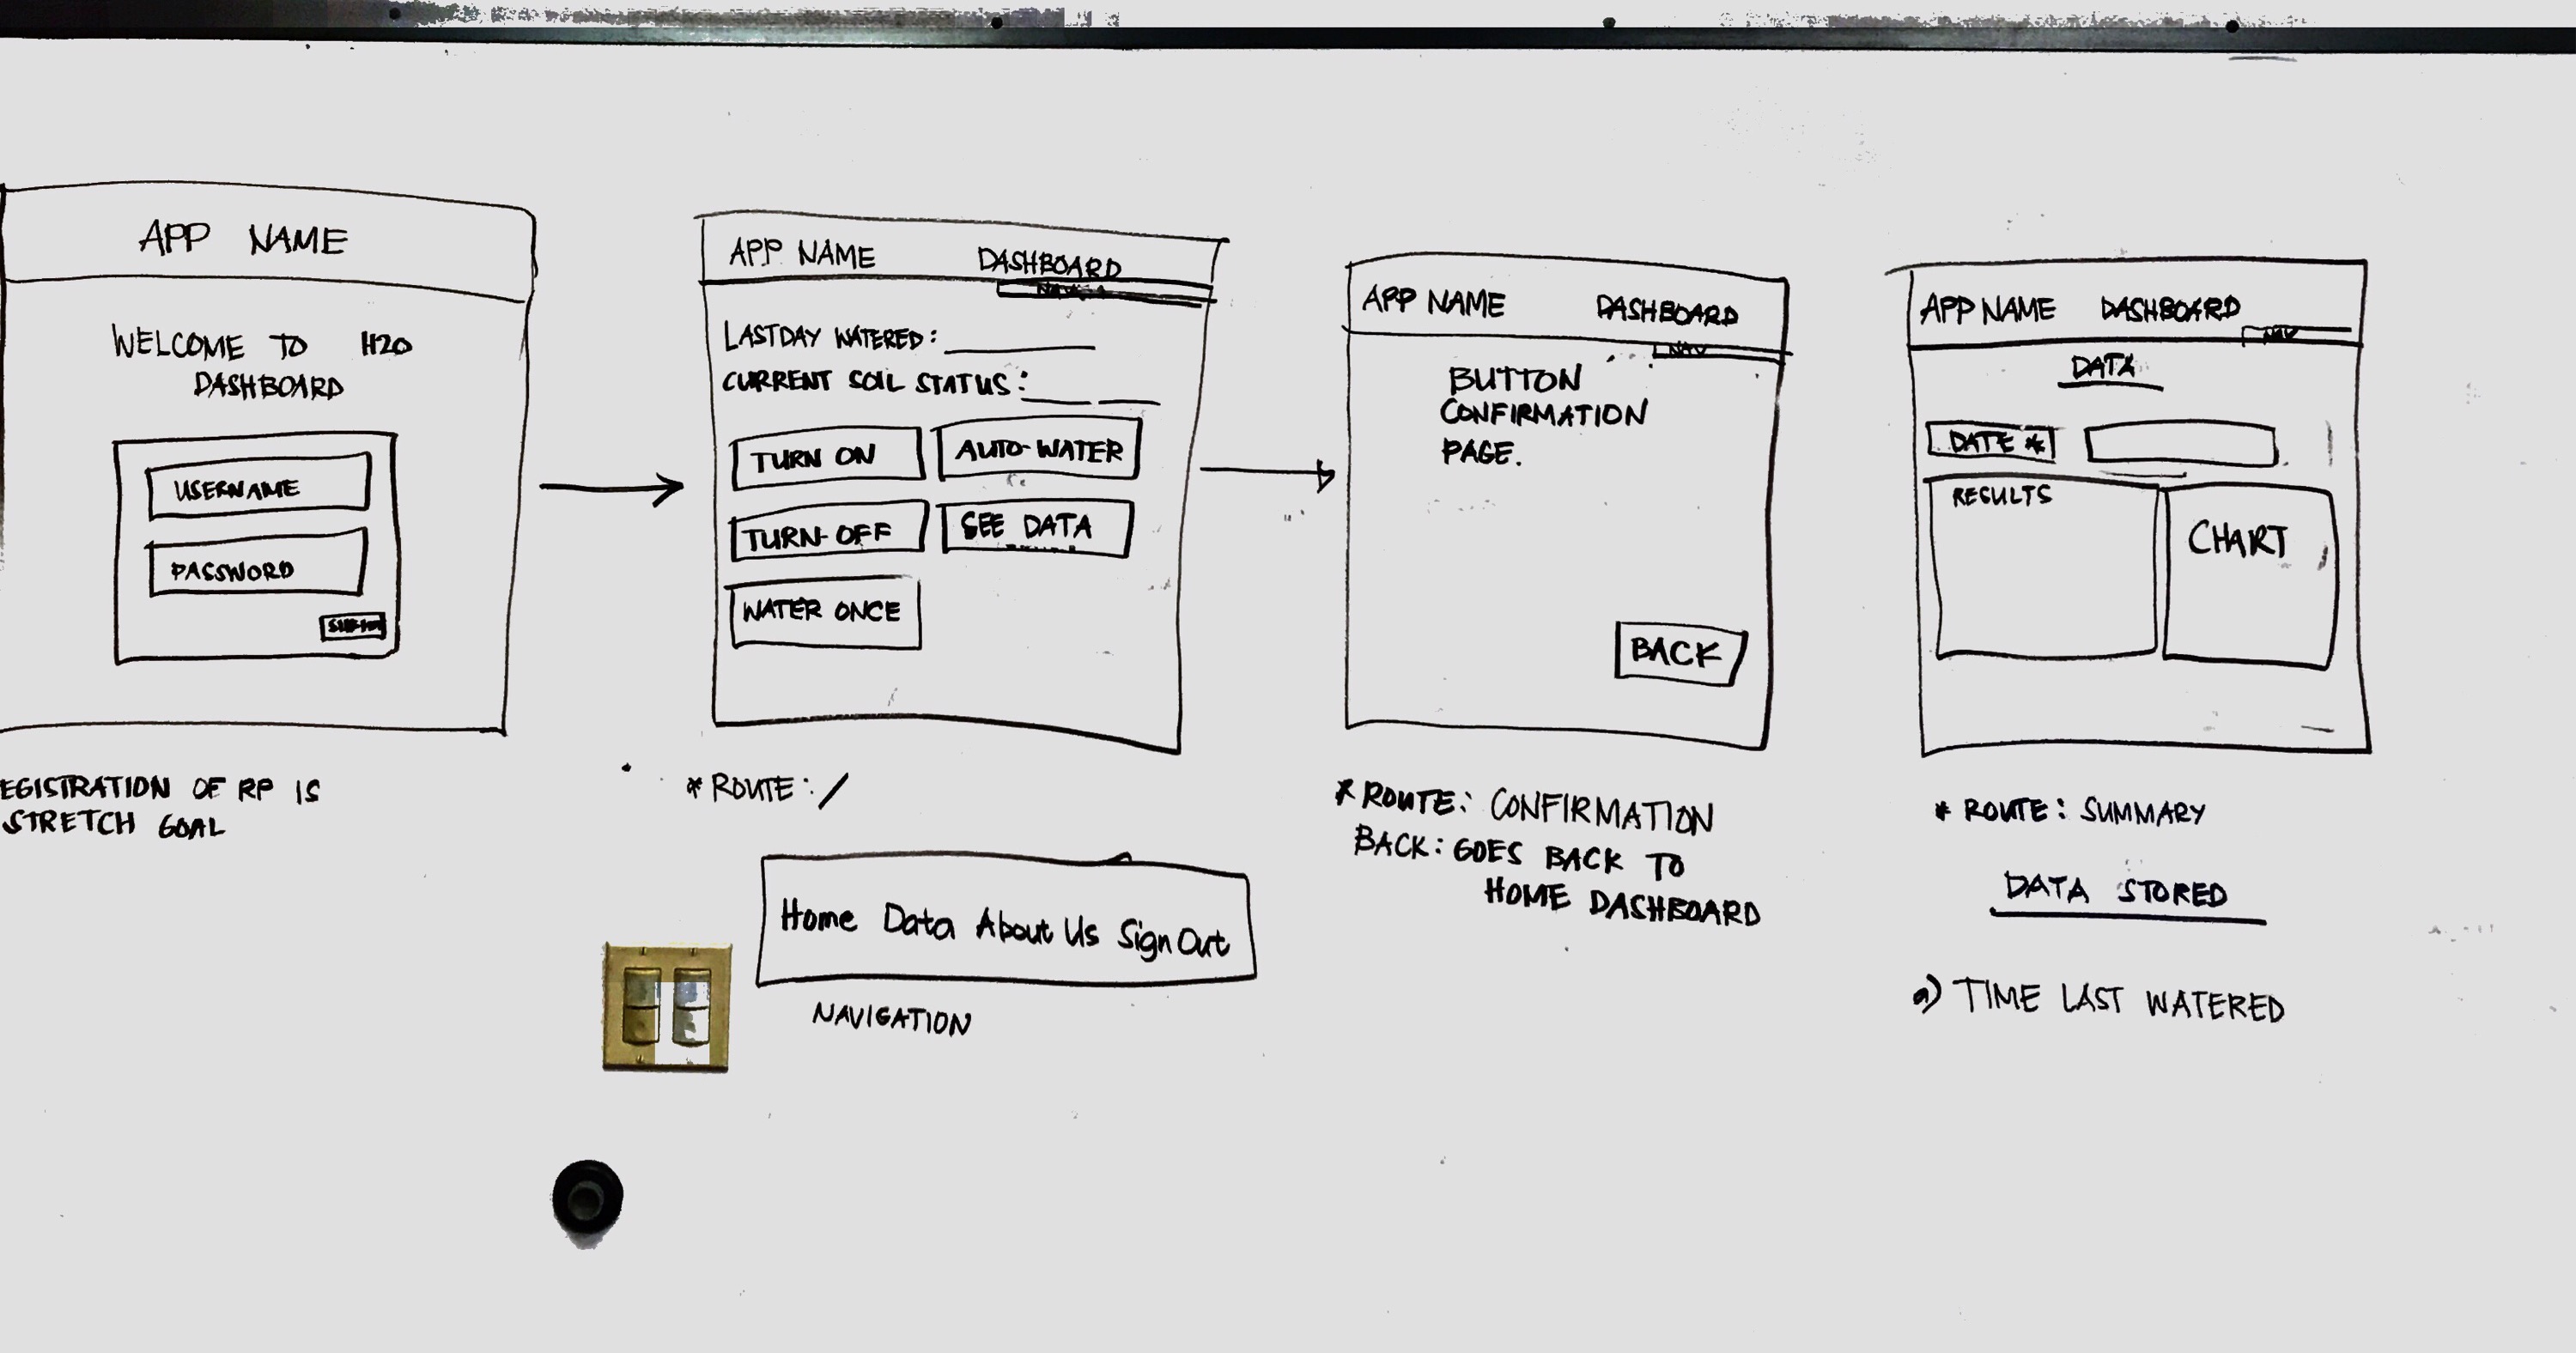 APP NAME
WELCOME TO H20
DASHBOARD
USERNAME
PASSWORD
EGISTRATION OF RP IS
STRETCH GOAL
APP NAME DASHBOARD
LAST DAY WATERED:
CURRENT SOIL STATUS:
TURN ON AUTO-WATER
TURN-OFF SEE DATA
WATER ONCE
* ROUTE: /
Home Data About Us Sign Out
NAVIGATION
APP NAME DASHBOARD
NAV
BUTTON
CONFIRMATION
PAGE.
BACK
* ROUTE: CONFIRMATION
BACK: GOES BACK TO
HOME DASHBOARD
APP NAME DASHBOARD
NAV
DATA
DATE *
RESULTS
CHART
* ROUTE: SUMMARY
DATA STORED
a) TIME LAST WATERED